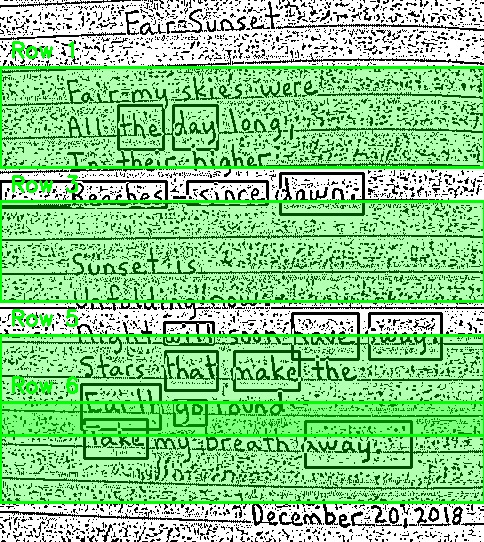 Fair Sunset
Row 1
Fair my skies were
All the day long,
In their higher
Row 3
Reaches – since dawn.
Sunset is
unfolding now.
Row 5
Night will soon have sway.
Stars that make the
Row 6
Earth go round
Take my breath away.
December 20, 2018